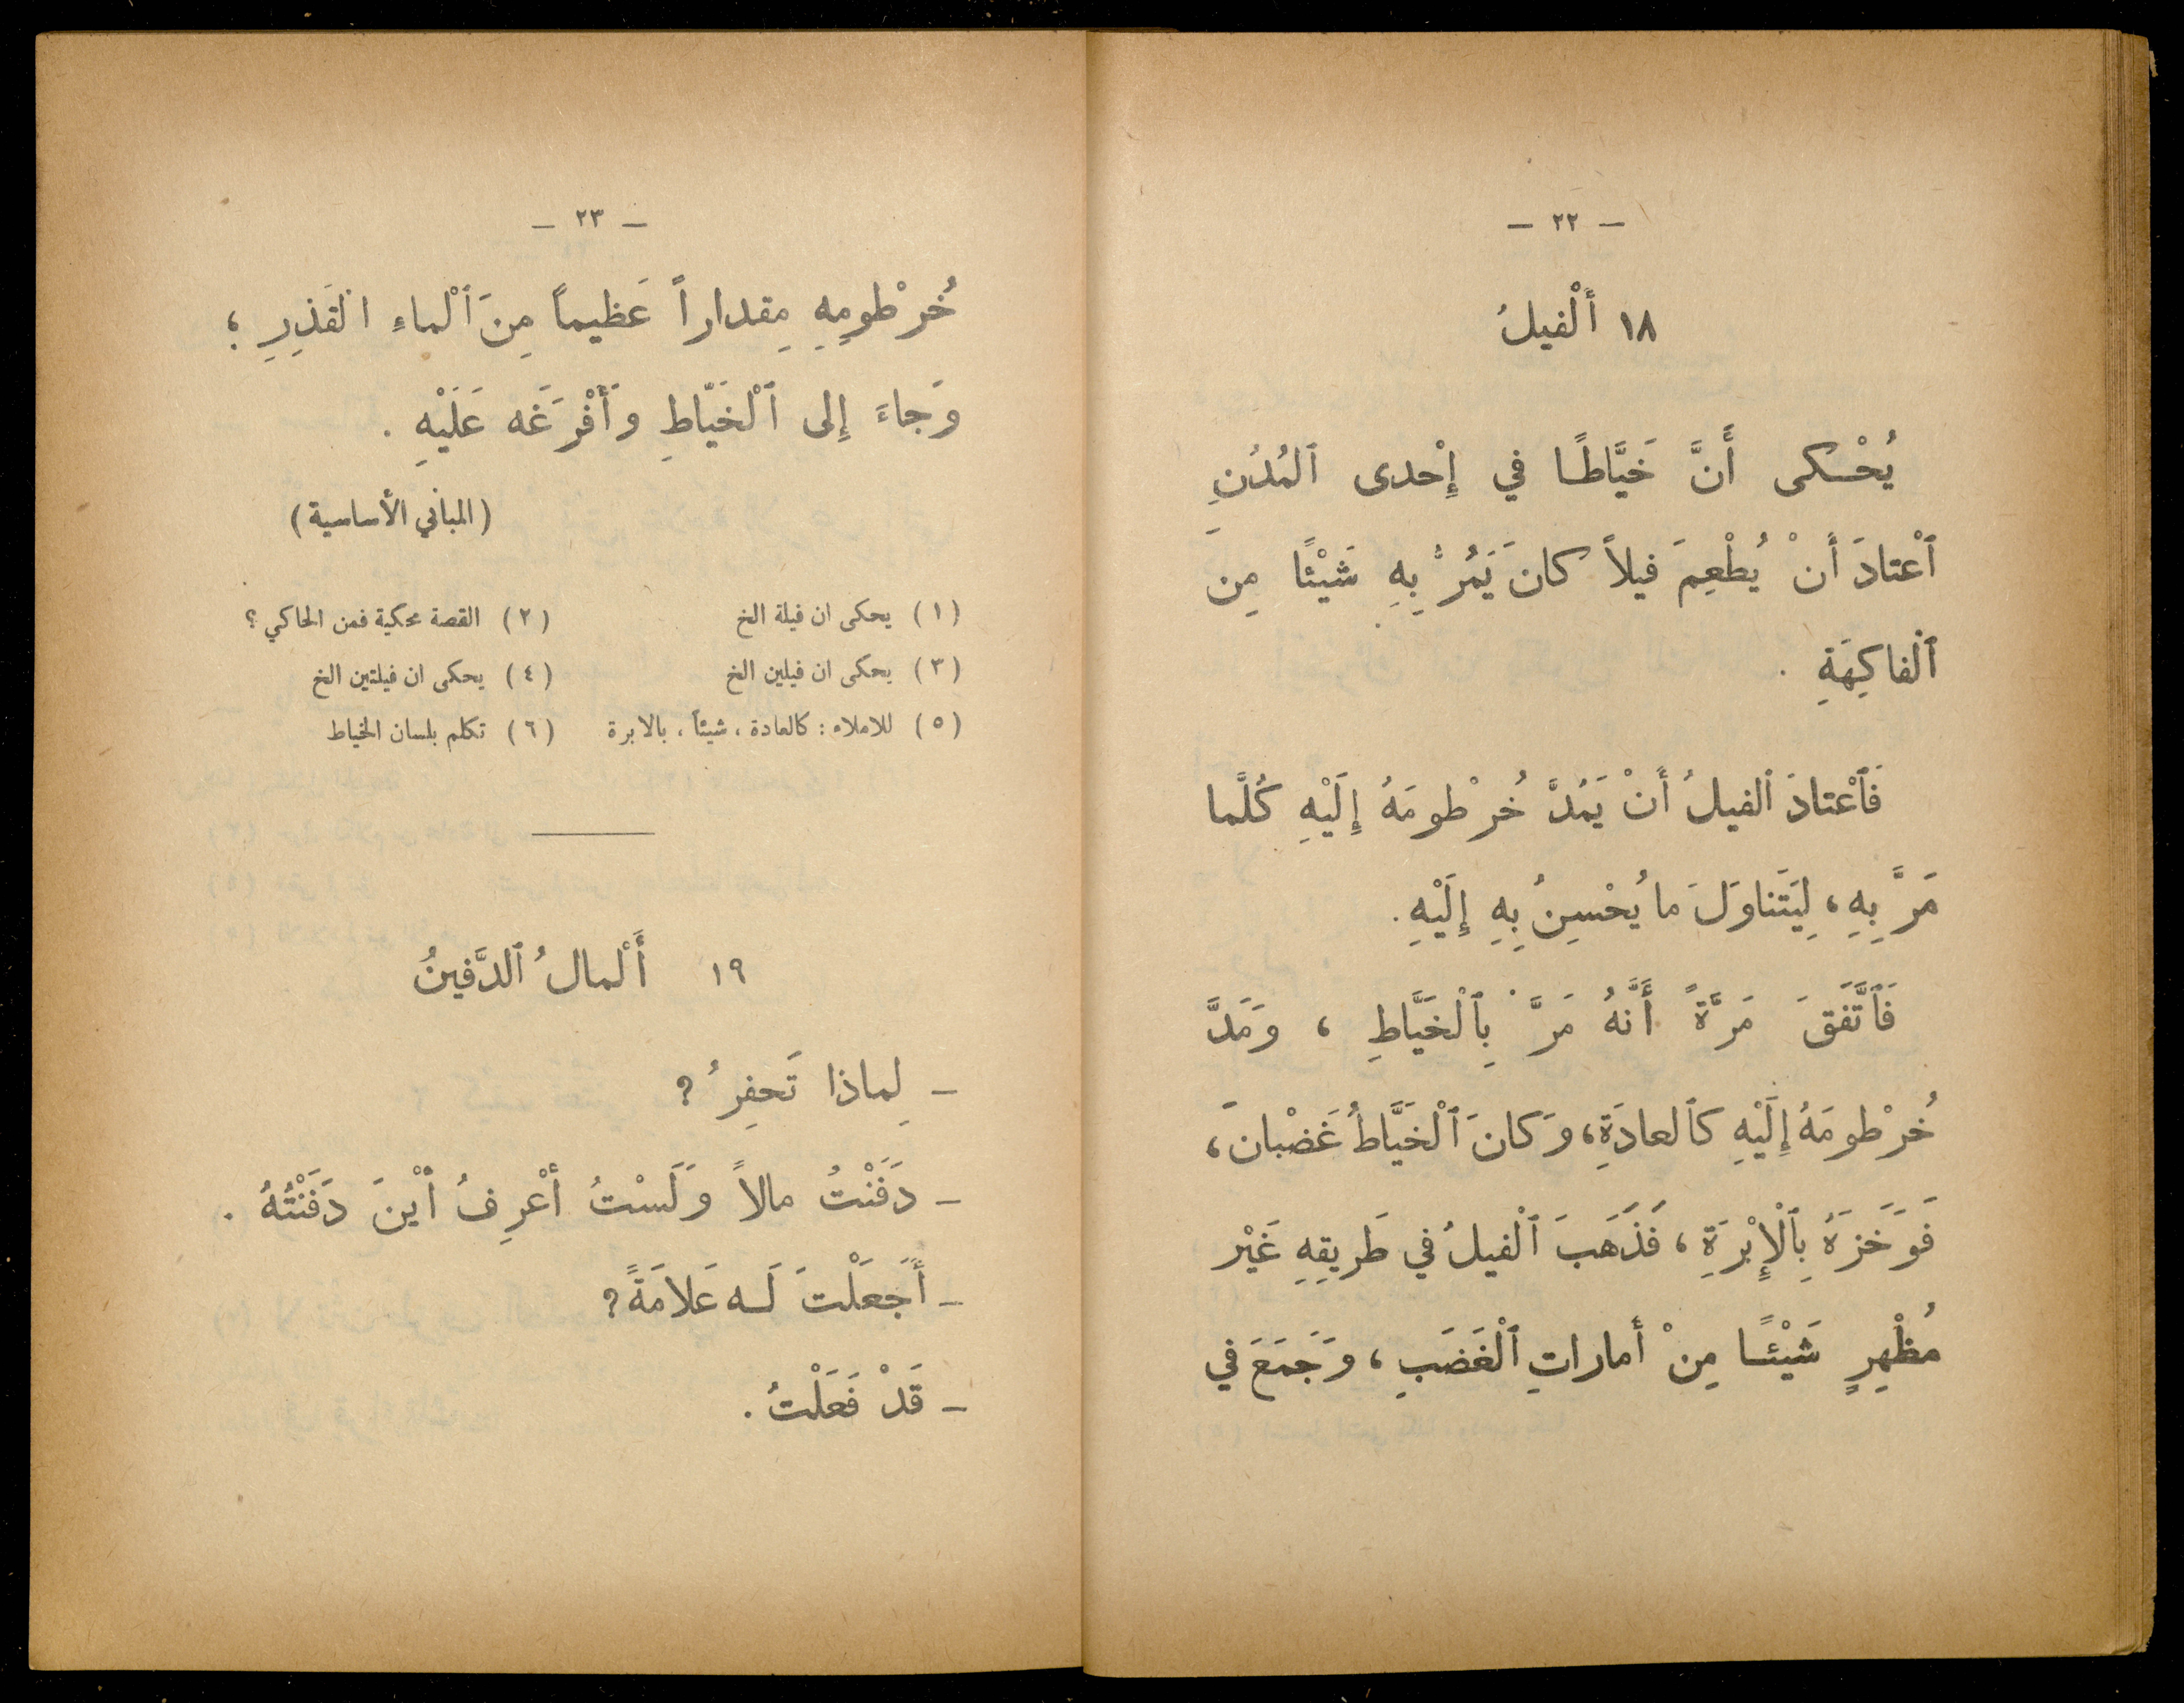 — ٢٢ —
١٨ أَلْفيلُ
يُحْكى أَنَّ خَيَّاطًا في إِحْدى ٱلمُدُنِ
ٱعْتادَ أَنْ يُطْعِمَ فيلاً كانَ يَمُرُّ بِهِ شَيْئًا مِنَ
ٱلْفاكِهَةِ .
فَٱعْتادَ ٱلفيلُ أَنْ يَمُدَّ خُرْطومَهُ إِلَيْهِ كُلَّما
مَرَّ بِهِ، لِيَتَناوَلَ ما يُحْسِنُ بِهِ إِلَيْهِ.
فَٱتَّفَقَ مَرَّةً أَنَّهُ مَرَّ بِٱلْخَيَّاطِ ، وَمَدَّ
خُرْطومَهُ إِلَيْهِ كٱلعادَةِ، وَكانَ ٱلْخَيَّاطُ غَضْبانَ،
فَوَخَزَهُ بِٱلْإِبْرَةِ ، فَذَهَبَ ٱلْفيلُ في طَريقِهِ غَيْر
مُظْهِرٍ شَيْئًا مِنْ أَماراتِ ٱلْغَضَبِ ، وَجَمَعَ في
— ٢٣ —
خُرْطومِهِ مِقداراً عَظيماً مِنَ ٱلْماءِ القَذِرِ ؛
وَجاءَ إِلى ٱلْخَيّاطِ وَأَفْرَغَه عَلَيْهِ .
(المباني الأساسية)
(١) يحكى ان فيلة الخ (٢) القصة محكية فمن الحاكي ؟
(٣) يحكى ان فيلين الخ (٤) يحكى ان فيلتين الخ
(٥) للاملاء : كالعادة ، شيئاً ، بالابرة (٦) تكلم بلسان الخياط
١٩ أَلْمالُ ٱلدَّفينُ
– لِماذا تَحفِرُ ?
– دَفَنْتُ مالاً وَلَسْتُ أَعْرِفُ أَيْنَ دَفَنْتُهُ .
– أَجَعَلْتَ لَه عَلامَةً ?
– قَدْ فَعَلْتُ .